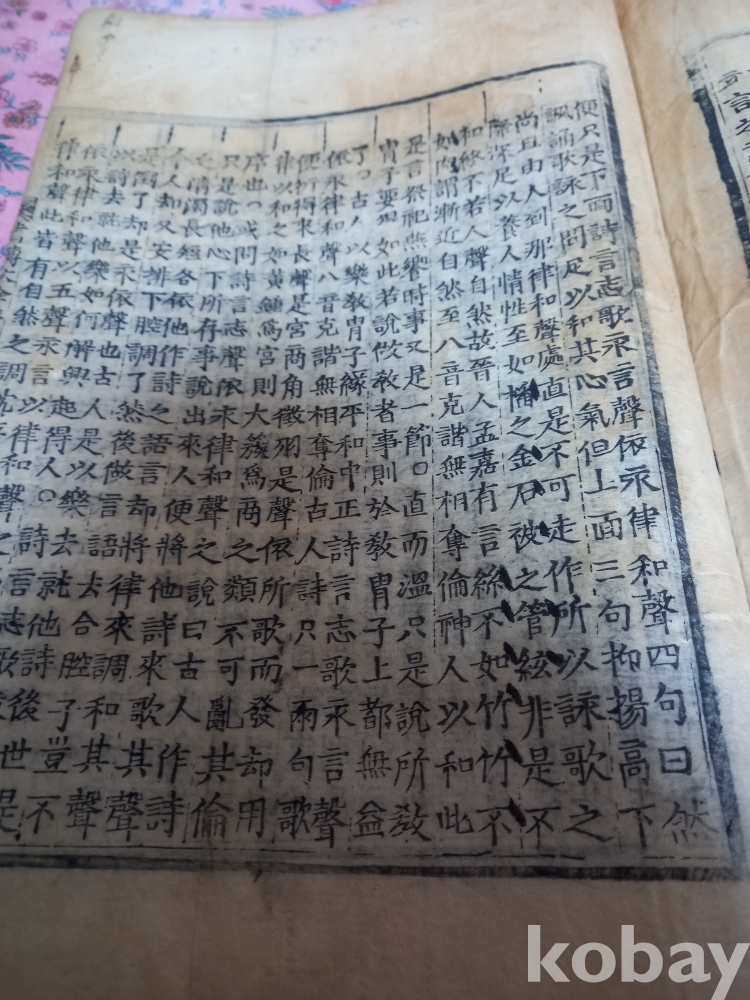 便只是下面詩言志歌永言聲依永律和聲四句曰然
諷誦歌詠之間足以和其心氣但上面三句抑揚高下
尚且由人到那律和聲處直是不可走作所以詠歌之
際深足以養人情性至如播之金石被之管絃非是不
和終不若人聲自然故晉人孟嘉有言絲不如竹竹不
如肉謂漸近自然至八音克諧無相奪倫神人以和此
是言祭祀燕饗時事又是一節○直而溫只是說所敎
胄子要得如此若說做敎者事則於敎胄子上都無益
了○古人以樂敎胄子緣平和中正詩言志歌永言聲
依永律和聲八音克諧無相奪倫古人詩只一兩句歌
便衍得來長聲是宮商角徵羽是聲依所歌而發却用
律以和之如黃鍾爲宮則太簇爲商之類不可亂其倫
序也○或問詩言志聲依永律和聲之說曰古人作詩
只是說他心下所存事說出來人便將他詩來歌其聲
之淸濁長短各依他作詩之語言却將律來調和其聲
今人却又安排下腔調了然後做言語去合腔子豈不
是倒了却是永依聲也古人是以樂去就他詩後世是
以詩去就他樂如何解興起得人○詩言志歌
依永律和聲以五聲永言以律和聲之
律和聲此皆有自然之調
kobay